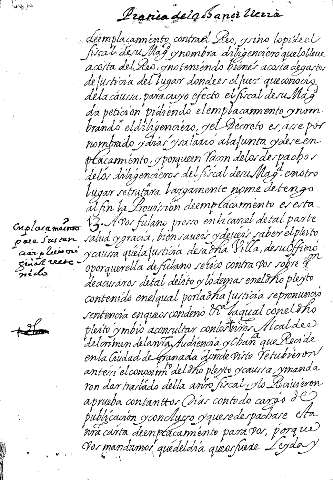 Pratica de la Chancilleria
de emplacamento contra el Reo, y sino lo pide el
fiscal de su Magd y nombra diligenciero que lo lleve
acosta del Reo, y no teniendo bienes acosta de gastos
de Justicia del lugar donde es el Juez que conocio
de la causa, para cuyo efecto el fiscal de su Magd
da peticion pidiendo el emplacamento, y nom-
brando el diligenciero, y el Decreto es, ase por
nombrado y dias y salario a la Junta y dese en-
plaçamento, y porque en raçon de los despachos
de los diligencieros del fiscal de su Magd en otro
lugar se tratara largamente no me detengo
al fin la Provission de emplacamento es esta
V. A vos fulano presso en la carcel de tal parte
salud y gracia, bien saveis y deveis saber el pleito
y caussa que la Justicia de dha Villa, de su officio
o por querella de fulano siguio contra vos sobre que
de acusaros de tal delito y lo demas en el dho pleyto
contenido en el qual por la dha Justicia se pronuncio
sentencia en que os condeno Ra la qual con el dho
pleyto ymbio a consultar con los nros Alcaldes
del crimen de la nra Audiencia y Chanca que Reside
en la Ciudad de Granada y donde visto Retubieron
ante si el conocimto del dho pleyto y caussa, y manda-
ron dar traslado della a nro fiscal, y lo Recivieron
a prueba con tantos Dias con todo cargo de
publicacion y conclusso y que se despachase esta
nra carta de emplacamento para vos, porque
vos mandamos que del dia que os fuere leyda y